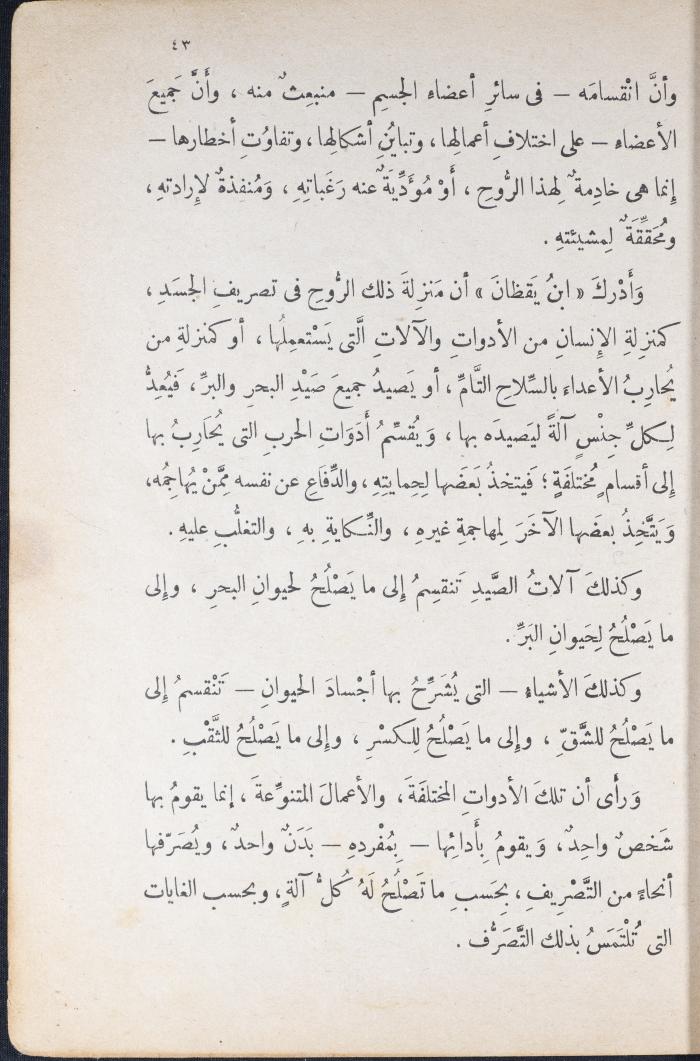 ٤٣
وأنَّ انْقسامَه – فى سائرِ أعضاءِ الجسمِ – منبعِثٌ منه ، وأَنَّ جَميعَ
الأعضاءِ – على اختلافِ أعمالِها ، وتبايُنِ أشكالِها ، وتفاوُتِ أخطارِها –
إنما هى خادِمةٌ لِهذا الرُّوحِ ، أَوْ مُؤَدِّيَةٌ عنه رَغَباتِهِ ، وَمُنفذةٌ لإِرادتهِ ،
ومُحَقِّقَةٌ لِمشيئتهِ .
وَأَدْركَ « ابنُ يَقظانَ » أن مَنزِلةَ ذلك الرُّوحِ فى تصريفِ الجسَدِ ،
كمنزِلةِ الإِنسانِ من الأدواتِ والآلاتِ الَّتى يَسْتعمِلُها ، أو كمنزلةِ من
يُحاربُ الأعداءَ بالسِّلاحِ التَّامِّ ، أو يَصيدُ جميعَ صَيْدِ البحرِ والبرِّ ، فيُعِدُّ
لِكلِّ جِنْسٍ آلةً ليَصيدَه بها ، وَيُقسِّمُ أَدَوَاتِ الحربِ التى يُحَارِبُ بها
إلى أقسامٍ مُختلفَةٍ ؛ فَيتخذُ بَعَضَها لِحِمايتِهِ ، والدِّفَاعِ عن نفسه مِمَّنْ يُهاجمُه ،
وَيَتَّخِذُ بعضَها الآخَرَ لِمهاجمةِ غيرهِ ، والنِّكايةِ بهِ ، والتغلُّبِ عليهِ .
وكذلكَ آلاتُ الصَّيدِ تَنقسِمُ إلى ما يَصْلُحُ لحيوانِ البحرِ ، وإلى
ما يَصْلُحُ لِحَيوانِ البَرِّ .
وكذلكَ الأشياءِ – التى يُشَرِّحُ بها أجْسادَ الحيوانِ – تَنْقسمُ إلى
ما يَصْلُحُ للشَّقِّ ، وإلى ما يَصْلُحُ لِلكسْرِ ، وإلى ما يَصْلُحُ للثَّقْبِ .
وَرأى أن تلكَ الأدواتِ المختلفَةَ ، والأعمالَ المتنوِّعةَ ، إنما يقومُ بها
شَخصٌ واحِدٌ ، وَيقومُ بِأَدائِها – بِمُفْردهِ – بَدَنٌ واحدٌ ، ويُصَرّفها
أنحاءً من التَّصْرِيفِ ، بِحَسبِ ما تَصْلُحُ لَهُ كُلُّ آلةٍ ، وبحسب الغايات
التى تُلْتَمَسُ بذلك التَّصَرُّف .